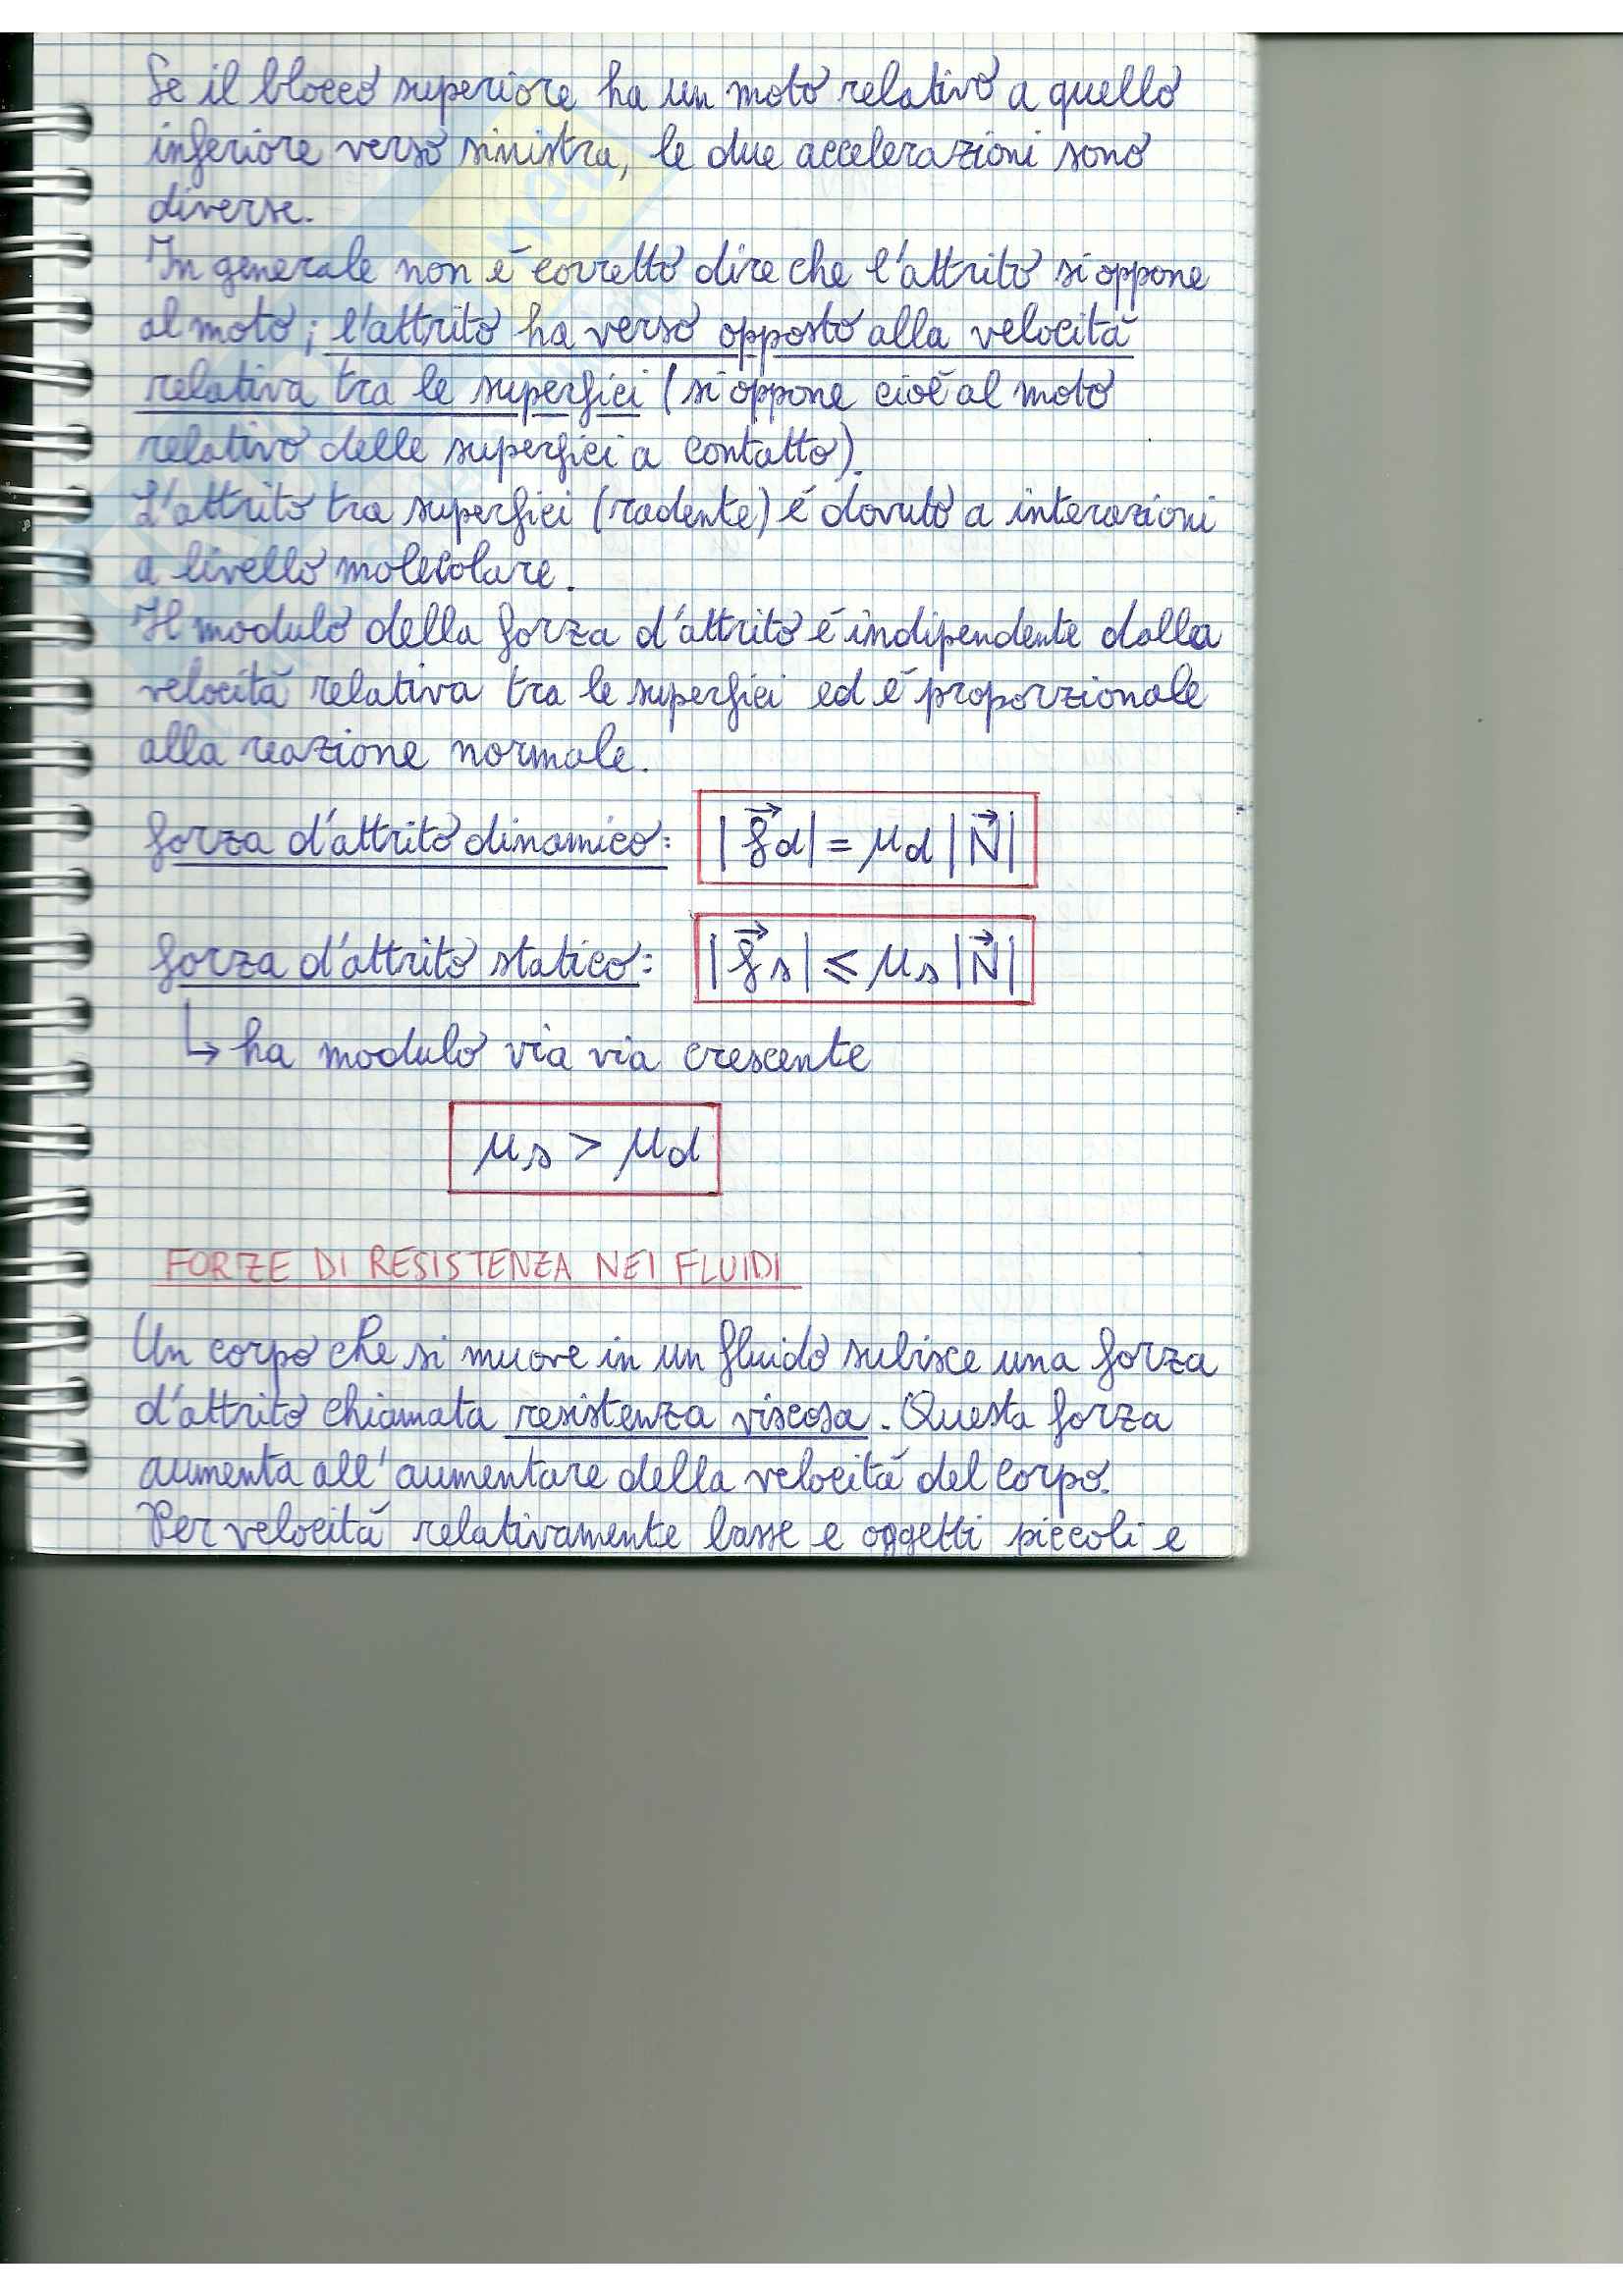 Se il blocco superiore ha un moto relativo a quello
inferiore verso sinistra, le due accelerazioni sono
diverse.
In generale non é corretto dire che l'attrito si oppone
al moto; l'attrito ha verso opposto alla velocitá
relativa tra le superfici (si oppone cioé al moto
relativo delle superfici a contatto).
L'attrito tra superfici (radente) é dovuto a interazioni
a livello molecolare.
Il modulo della forza d'attrito é indipendente dalla
velocitá relativa tra le superfici ed é proporzionale
alla reazione normale.
forza d'attrito dinamico: |f⃗d| = μd |N⃗|
forza d'attrito statico: |f⃗s| ⩽ μs |N⃗|
↳ ha modulo via via crescente
μs > μd
FORZE DI RESISTENZA NEI FLUIDI
Un corpo che si muove in un fluido subisce una forza
d'attrito chiamata resistenza viscosa. Questa forza
aumenta all'aumentare della velocitá del corpo.
Per velocitá relativamente basse e oggetti piccoli e